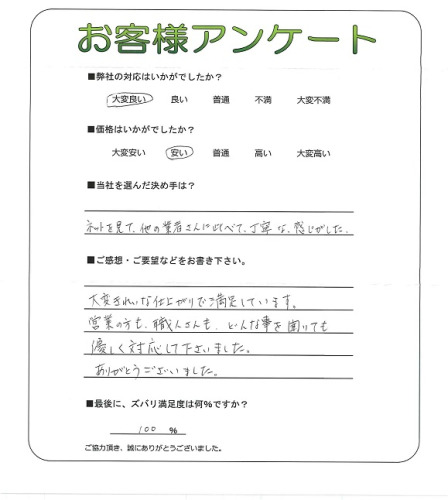 お客様アンケート
■弊社の対応はいかがでしたか？
大変良い 良い 普通 不満 大変不満
■価格はいかがでしたか？
大変安い 安い 普通 高い 大変高い
■当社を選んだ決め手は？
ネットを見て、他の業者さんに比べて、丁寧な、感じがした。
■ご感想・ご要望などをお書き下さい。
大変きれいな仕上がりで満足しています。
営業の方も、職人さんも、どんな事を聞いても
優しく対応して下さいました。
ありがとうございいました。
■最後に、ズバリ満足度は何%ですか？
100 %
ご協力頂き、誠にありがとうございました。